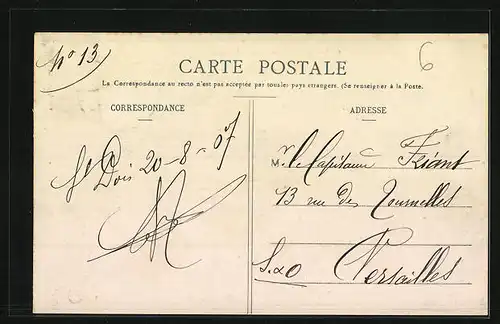 No 13
6
CARTE POSTALE
La Correspondance au recto n'est pas acceptée par tous les pays étrangers. (Se renseigner à la Poste.
CORRESPONDANCE
ADRESSE
20-8-07
M r Le Capitaine Friant
13 rue des Tournelles
S.&O Versailles